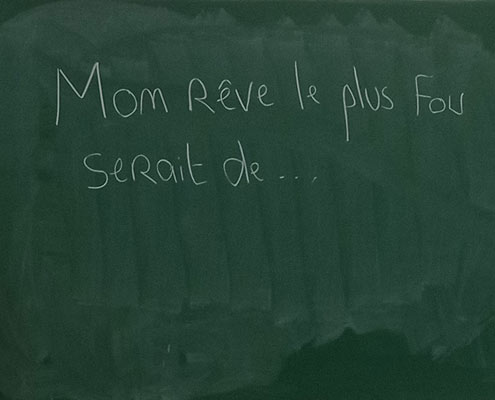 Mon Rêve le plus Fou
SeRait de...